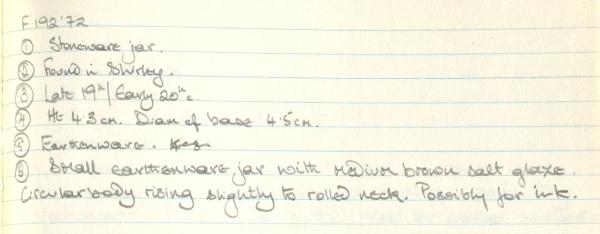 F192'72
① Stoneware jar.
② Found in Shirley.
③ Late 19th/Early 20th c.
④ Ht 4.3cm. Diam of base 4.5cm.
⑤ Earthenware.
⑥ Small earthenware jar with medium brown salt glaze.
Circular body rising slightly to rolled neck. Possibly for ink.